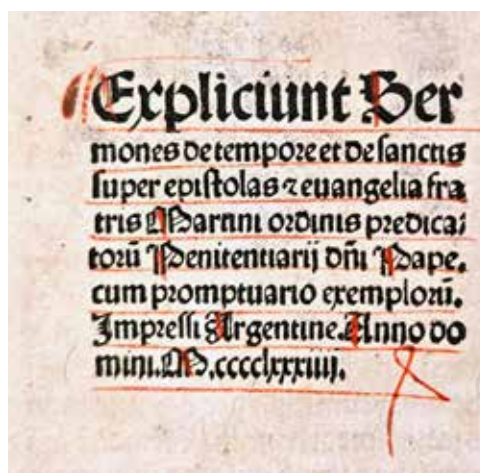 Expliciunt Ser
mones de tempore et de sanctis
super epistolas ⁊ euangelia fra
tris Martini ordinis predica⸗
torū Penitentiarij dn̄i Pape.
cum promptuario exemplorū.
Impressi Argentine. Anno do
mini. M.cccclxxxiiij.